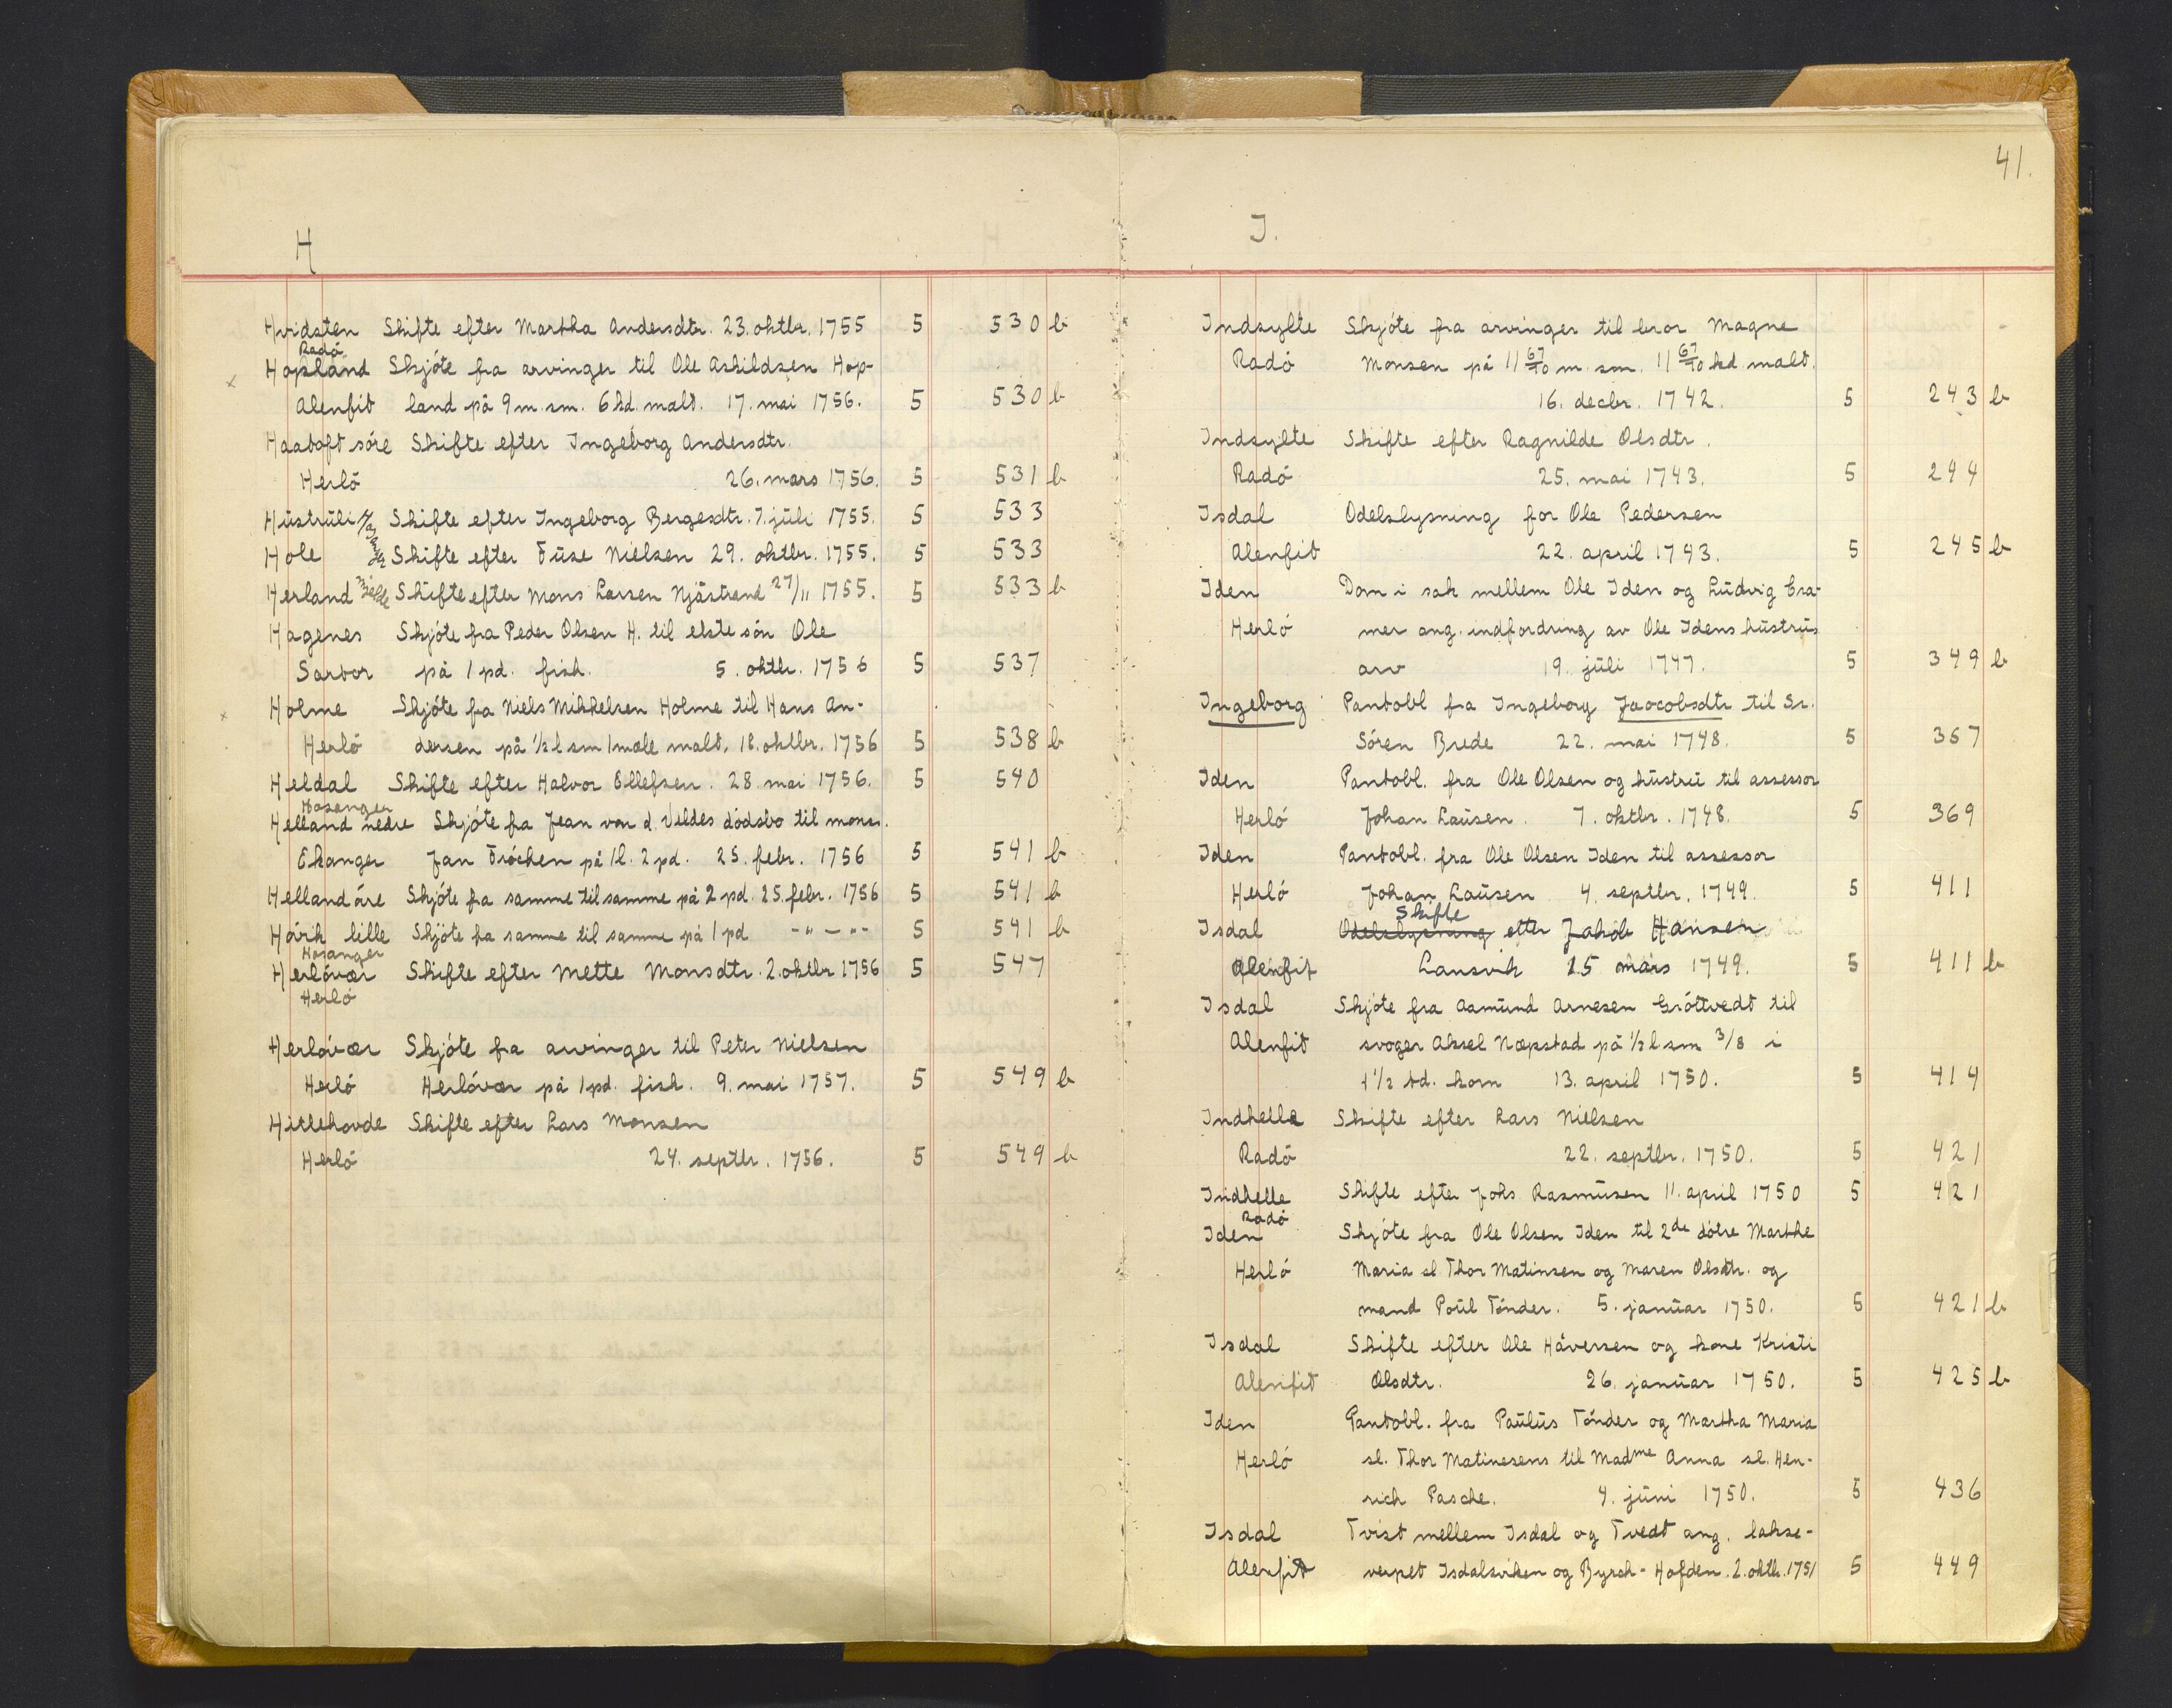 H
Hvidsten Skifte efter Martha Andersdtr. 23. oktbr. 1755 5 530 b
Radö
Hopland Skjöte fra arvinger til Ole Askildsen Hop-
Alenfit land på 9 m. sm. 6 kd. malt. 17. mai 1756. 5 530 b
Haatoft söre Skifte efter Ingeborg Andersdtr.
Herlö 26. mars 1756. 5 531 b
Hustruli Skifte efter Ingeborg Bergesdtr. 7. juli 1755. 5 533
Hole Skifte efter Tuse Nielsen 29. oktbr. 1755. 5 533
Herland Mjelde Skifte efter Mons Larsen Njåstrand 27/11 1755. 5 533 b
Hagenes Skjöte fra Peder Olsen H. til elste sön Ole
Sartor på 1 pd. fisk. 5. oktbr. 1756 5 537
Holme Skjöte fra Niels Mikkelsen Holme til Hans An-
Herlö dersen på 1/2 l sm 1 mæle malt. 18. oktbr. 1756 5 538 b
Heldal Skifte efter Halvor Ellefsen. 28. mai 1756. 5 540
Hosanger
Helland nedre Skjöte fra Jean von d. Veldes dödsbo til mons.
Ekanger Jan Fröchen på 1 l. 2 pd. 25. febr. 1756 5 541 b
Helland öre Skjöte fra samme til samme på 2 pd. 25. febr. 1756 5 541 b
Hövik lille Skjöte fra samme til samme på 1 pd -"-"- 5 541 b
Hosanger
Herlövær Skifte efter Mette Monsdtr. 2. oktbr 1756 5 547
Herlö
Herlövær Skjöte fra arvinger til Peter Nielsen
Herlö Herlövær på 1 pd. fisk. 9. mai 1757. 5 549 b
Hitlehovde Skifte efter Lars Monsen
Herlö 24. septbr. 1756. 5 549 b
41.
I.
Indsylte Skjöte fra arvinger til bror Magne
Radö Monsen på 11 67/70 m. sm. 11 67/70 kd. malt.
16. decbr. 1742. 5 243 b
Indsylte Skifte efter Ragnilde Olsdtr.
Radö 25. mai 1743. 5 244
Isdal Odelslysning for Ole Pedersen
Alenfit 22. april 1743. 5 245 b
Iden Dom i sak mellem Ole Iden og Ludvig Cra-
Herlö mer ang. indfordring av Ole Idens hustrus
arv 19. juli 1747. 5 349 b
Ingeborg Pantobl fra Ingeborg Jaocobsdtr til Sr.
Sören Brede 22. mai 1748. 5 367
Iden Pantobl. fra Ole Olsen og hustru til assessor
Herlö Johan Lausen. 7. oktbr. 1748. 5 369
Iden Pantobl. fra Ole Olsen Iden til assessor
Herlö Johan Lausen 4. septbr. 1749. 5 411
Skifte
Isdal Odelslysning etter Jakob Hansen
Alenfit Lansvik 15 mars 1749. 5 411 b
Isdal Skjöte fra Aamund Arnesen Gröttvedt til
Alenfit svoger Aksel Næpstad på 1/2 l sm 3/8 i
1 1/2 td. korn 13. april 1750. 5 414
Indhelle Skifte efter Lars Nielsen
Radö 22. septbr. 1750. 5 421
Indhelle Skifte efter Johs Rasmusen 11. april 1750 5 421
Radö
Iden Skjöte fra Ole Olsen Iden til 2de dötre Marthe
Herlö Maria sl Thor Matinsen og Maren Olsdtr. og
mand Poul Tönder. 5. januar 1750. 5 421 b
Isdal Skifte efter Ole Håversen og kone Kristi
Alenfit Olsdtr. 26. januar 1750. 5 425 b
Iden Pantobl. fra Paulus Tönder og Martha Maria
Herlö sl. Thor Matinesens til Madme Anna sl. Hen-
rich Pasche. 4. juni 1750. 5 436
Isdal Tvist mellem Isdal og Tvedt ang. lakse-
Alenfit verpet Isdalsviken og Byrch-Hofden. 2. oktb. 1751 5 449